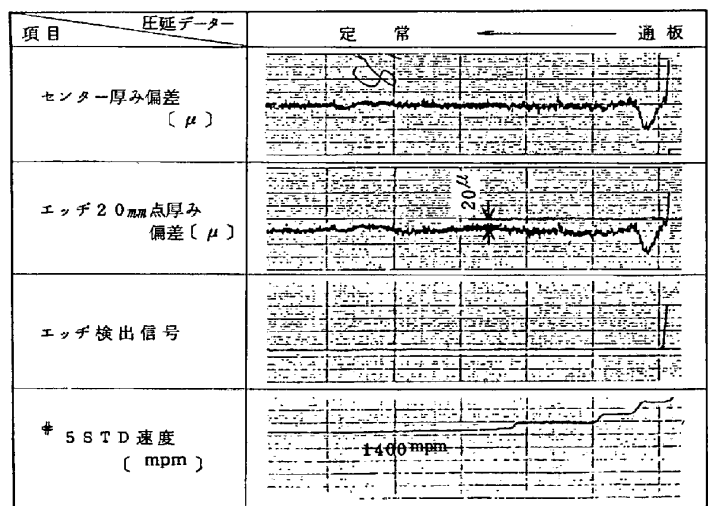 圧延データー
項目
定常 ← 通板
センター厚み偏差
〔 μ 〕
エッヂ20mm点厚み
偏差〔 μ 〕
20μ
エッヂ検出信号
# 5STD速度
〔 mpm 〕
1400mpm